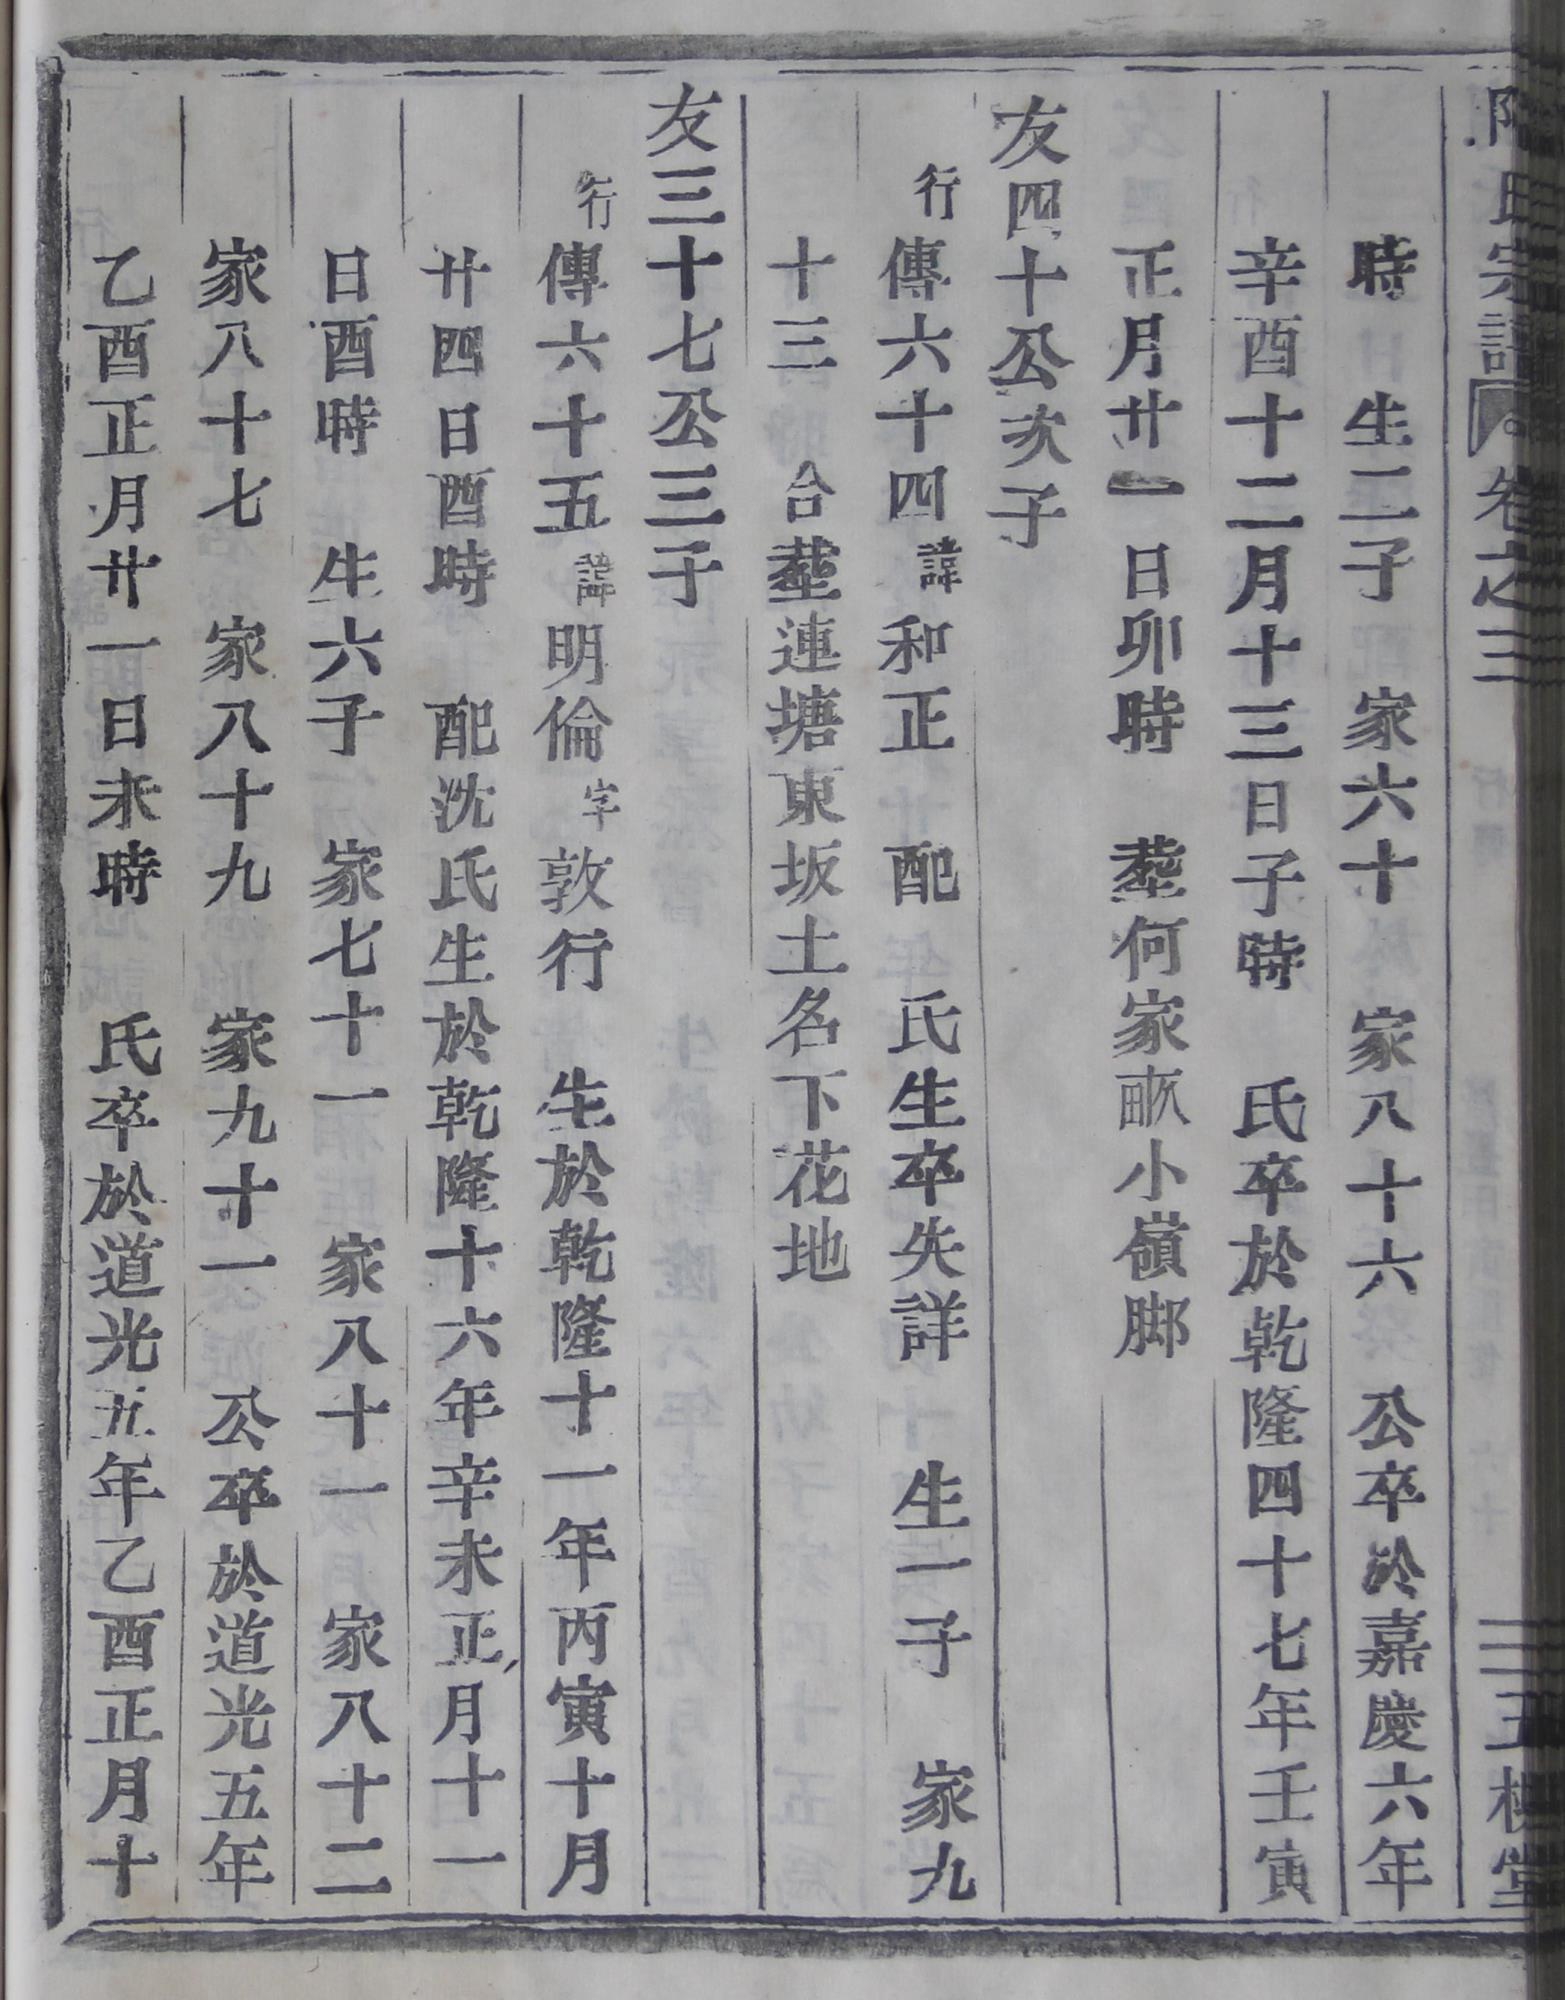 氏宗譜 卷之三 三五 堂
時 生二子 家六十 家八十六 公卒於嘉慶六年
辛酉十二月十三日子時 氏卒於乾隆四十七年壬寅
正月廿一日卯時 塟何家畈小嶺脚
友四十公次子
行傳六十四諱和正 配 氏生卒失詳 生一子 家九
十三 合塟連塘東坂土名下花地
友三十七公三子
行傳六十五諱明倫字敦行 生於乾隆十一年丙寅十月
廿四日酉時 配沈氏生於乾隆十六年辛未正月十一
日酉時 生六子 家七十一 家八十一 家八十二
家八十七 家八十九 家九十一 公卒於道光五年
乙酉正月廿一日未時 氏卒於道光五年乙酉正月十